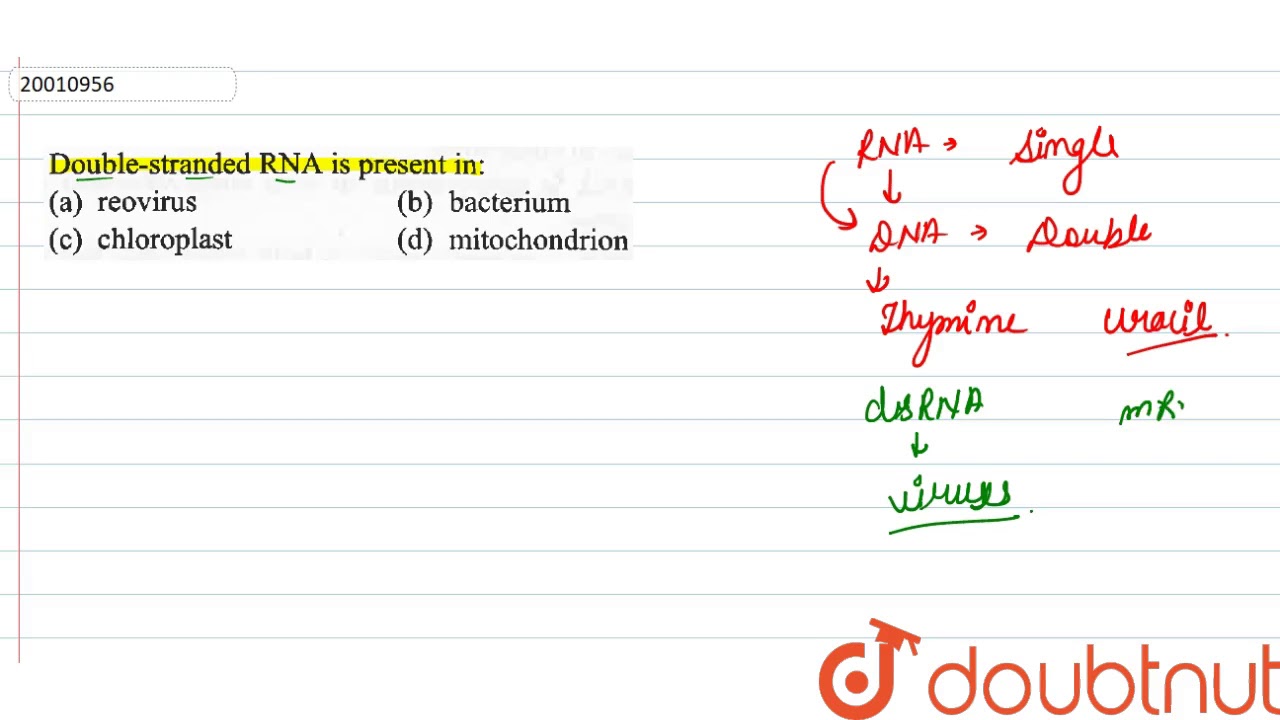 20010956
Double-stranded RNA is present in:
(a) reovirus (b) bacterium
(c) chloroplast (d) mitochondrion
RNA → Single
DNA → Double
Thymine Uracil.
dsRNA mR
viruses.
doubtnut